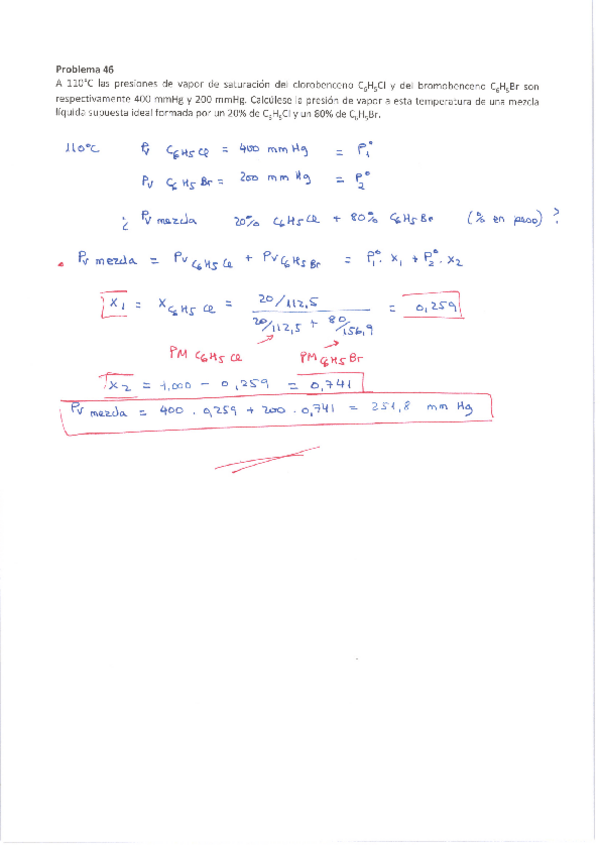 Problema 46
A 110°C las presiones de vapor de saturación del clorobenceno C₆H₅Cl y del bromobenceno C₆H₅Br son
respectivamente 400 mmHg y 200 mmHg. Calcúlese la presión de vapor a esta temperatura de una mezcla
líquida supuesta ideal formada por un 20% de C₆H₅Cl y un 80% de C₆H₅Br.
110°C Pv C₆H₅Cl = 400 mm Hg = P₁°
Pv C₆H₅Br = 200 mm Hg = P₂°
¿ Pv mezcla 20% C₆H₅Cl + 80% C₆H₅Br (% en peso) ?
Pv mezcla = Pv C₆H₅Cl + Pv C₆H₅Br = P₁° · x₁ + P₂° · x₂
x₁ = x C₆H₅Cl = 20/112,5 / (20/112,5 + 80/156,9) = 0,259
PM C₆H₅Cl PM C₆H₅Br
x₂ = 1,000 - 0,259 = 0,741
Pv mezcla = 400 · 0,259 + 200 · 0,741 = 251,8 mm Hg